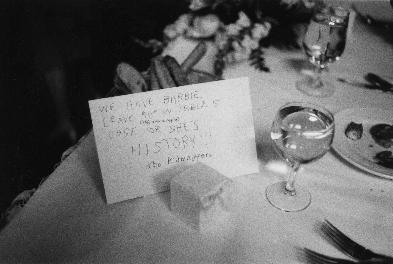 WE HAVE BARBIE.
LEAVE IN TABLE 5
VASE OR SHE'S
HISTORY!!
The Kidnappers